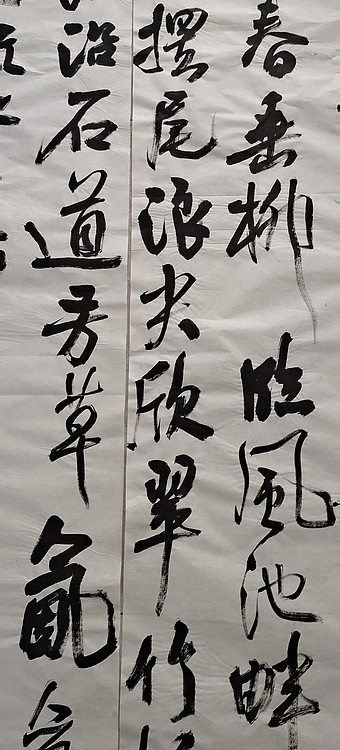 春垂柳临風池畔
摆尾浪尖欣翠竹
沿石道芳草氤